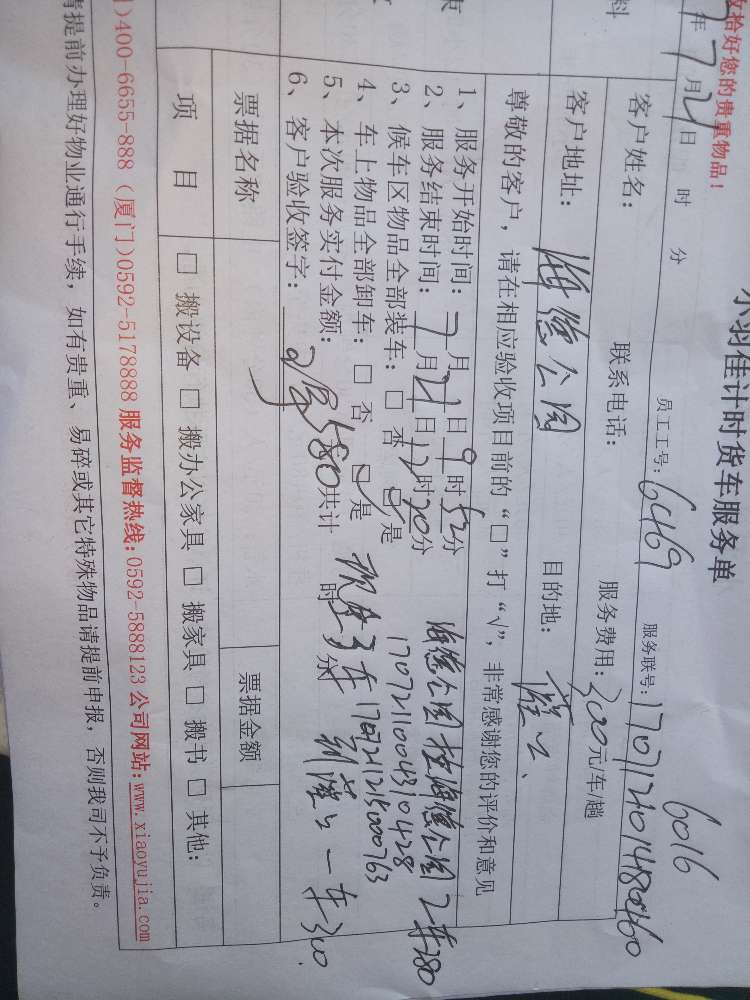 小羽佳计时货车服务单
6016
收拾好您的贵重物品！
员工工号：6469 服务联号：
年7月21日 时 分
料
客户姓名： 联系电话： 服务费用：300元/车/趟
客户地址：海沧公园 目的地：
尊敬的客户，请在相应验收项目前的“□”打“√”，非常感谢您的评价和意见
1、服务开始时间：7月21日9时52分
2、服务结束时间：7月21日12时20分
海沧公园 海沧公园2车280
3、候车区物品全部装车：□ 否 □ 是
17072110043310428
4、车上物品全部卸车：□ 否 □ 是
1707211215000763
5、本次服务实付金额：580共计 时 分
6、客户验收签字：
一车300
票据名称 票据金额
项 目 □ 搬设备 □ 搬办公家具 □ 搬家具 □ 搬书 □ 其他：
)400-6655-888（厦门)0592-5178888 服务监督热线:0592-5888123 公司网站:www.xiaoyujia.com
请提前办理好物业通行手续，如有贵重、易碎或其它特殊物品请提前申报，否则我司不予负责。